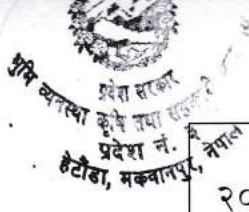 प्रदेश सरकार
भूमि व्यवस्था कृषि तथा
प्रदेश नं. ३
हेटौंडा, मकवानपुर, नेपाल
२०